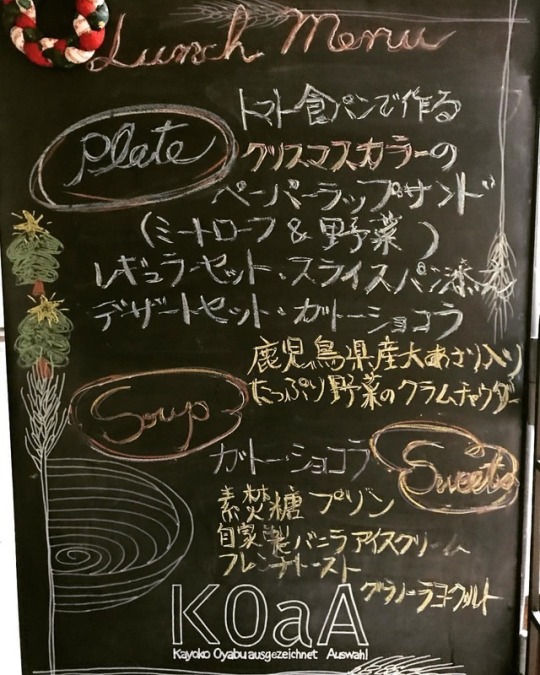 Lunch Menu
Plate
トマト食パンで作る
クリスマスカラーの
ペーパーラップサンド
(ミートローフ & 野菜)
レギュラーセット・スライスパン添え
デザートセット・ガトーショコラ
Soup
鹿児島県産大あさり入り
たっぷり野菜のクラムチャウダー
Sweets
ガトーショコラ
素焚糖プリン
自家製バニラアイスクリーム
フレンチトースト
グラノーラヨーグルト
KOaA
Kayoko Oyabu ausgezeichnet Auswahl